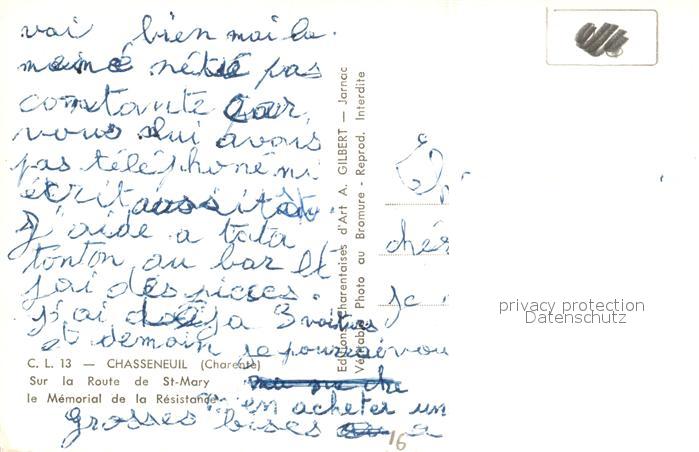 vai bien mai la
mainé nétié pas
constante car,
vous lui avous
pas téléphoné ni
écrit aussitôt.
J'aide a tata
tonton au bar Et
jai des pieces.
j'ai deja 3 voitures
et demain je pourrai
m'en acheter un
Grosses bises
16
chér
je
Editions Charentaises d'Art A. GILBERT — Jarnac
Véritable Photo au Bromure - Reprod. Interdite
C. L. 13 — CHASSENEUIL (Charente)
Sur la Route de St-Mary
le Mémorial de la Résistance
privacy protection
Datenschutz